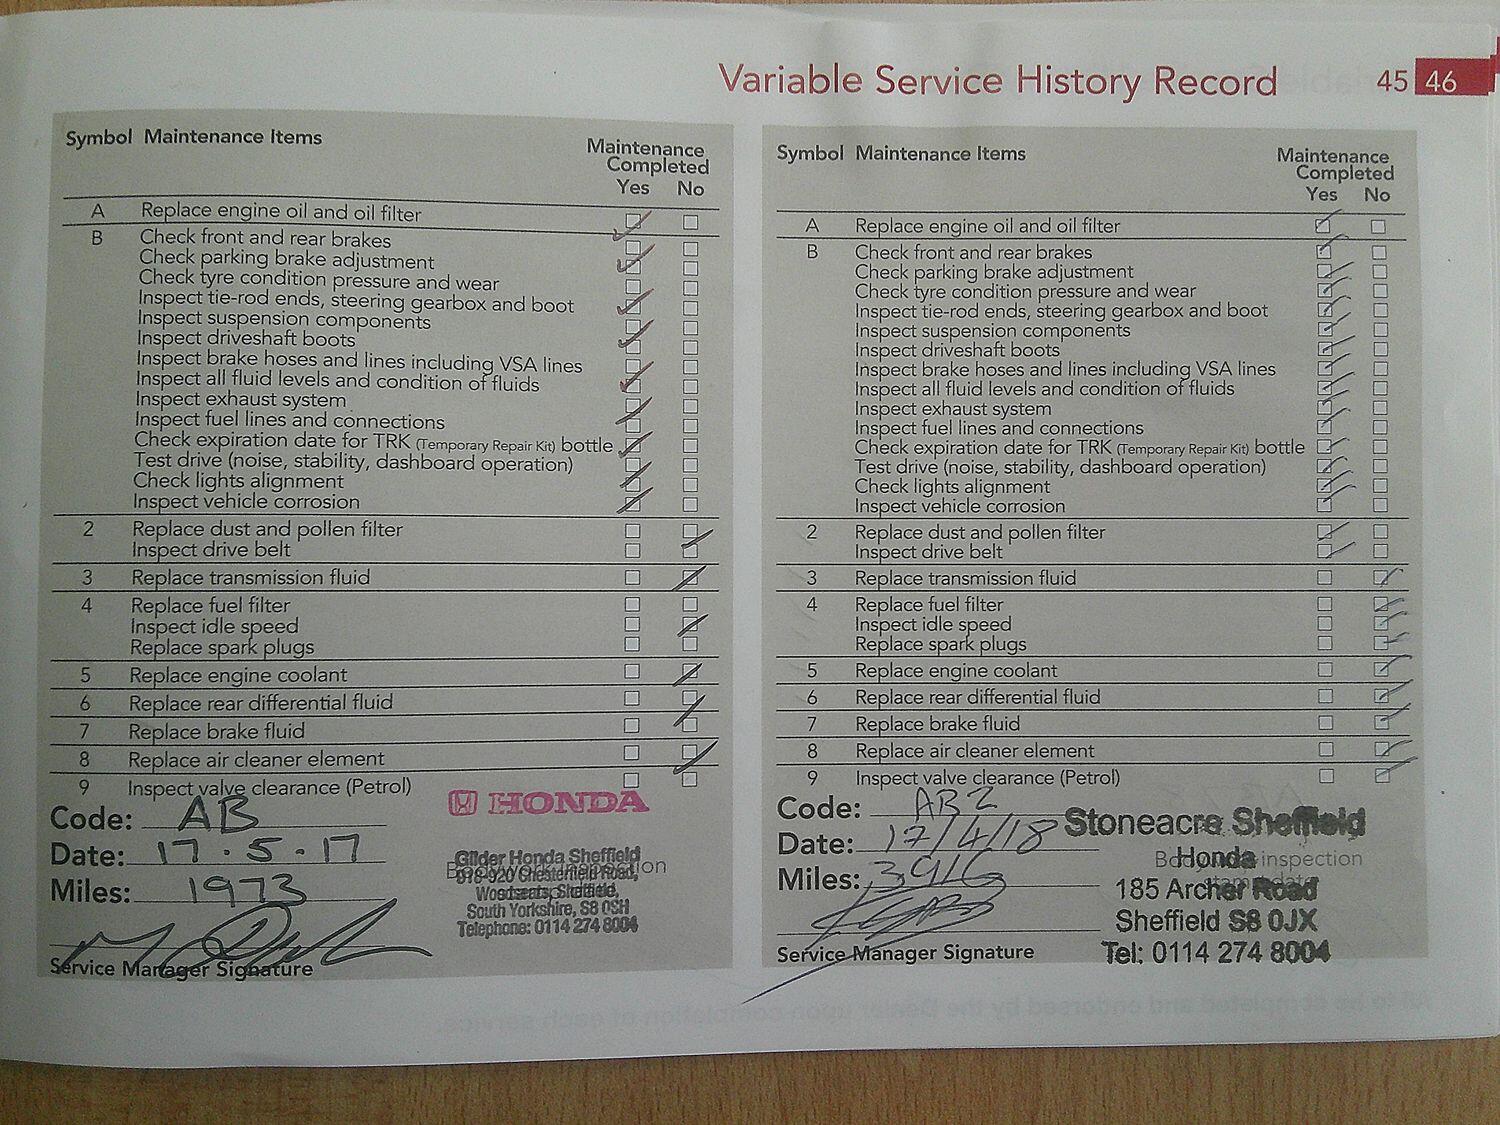 Variable Service History Record 45 46
Symbol Maintenance Items
Maintenance
Completed
Yes No
A Replace engine oil and oil filter
B Check front and rear brakes
Check parking brake adjustment
Check tyre condition pressure and wear
Inspect tie-rod ends, steering gearbox and boot
Inspect suspension components
Inspect driveshaft boots
Inspect brake hoses and lines including VSA lines
Inspect all fluid levels and condition of fluids
Inspect exhaust system
Inspect fuel lines and connections
Check expiration date for TRK (Temporary Repair Kit) bottle
Test drive (noise, stability, dashboard operation)
Check lights alignment
Inspect vehicle corrosion
2 Replace dust and pollen filter
Inspect drive belt
3 Replace transmission fluid
4 Replace fuel filter
Inspect idle speed
Replace spark plugs
5 Replace engine coolant
6 Replace rear differential fluid
7 Replace brake fluid
8 Replace air cleaner element
9 Inspect valve clearance (Petrol)
Code: AB
Date: 17.5.17
Miles: 1973
Service Manager Signature
HONDA
Gilder Honda Sheffield
Bodywork inspection
918-920 Chesterfield Road,
Woodseats, Sheffield,
South Yorkshire, S8 0SH
Telephone: 0114 274 8004
Symbol Maintenance Items
Maintenance
Completed
Yes No
A Replace engine oil and oil filter
B Check front and rear brakes
Check parking brake adjustment
Check tyre condition pressure and wear
Inspect tie-rod ends, steering gearbox and boot
Inspect suspension components
Inspect driveshaft boots
Inspect brake hoses and lines including VSA lines
Inspect all fluid levels and condition of fluids
Inspect exhaust system
Inspect fuel lines and connections
Check expiration date for TRK (Temporary Repair Kit) bottle
Test drive (noise, stability, dashboard operation)
Check lights alignment
Inspect vehicle corrosion
2 Replace dust and pollen filter
Inspect drive belt
3 Replace transmission fluid
4 Replace fuel filter
Inspect idle speed
Replace spark plugs
5 Replace engine coolant
6 Replace rear differential fluid
7 Replace brake fluid
8 Replace air cleaner element
9 Inspect valve clearance (Petrol)
Code: AB2
Date: 17/4/18
Miles: 3916
Service Manager Signature
Stoneacre Sheffield
Honda
inspection
185 Archer Road
Sheffield S8 0JX
Tel: 0114 274 8004